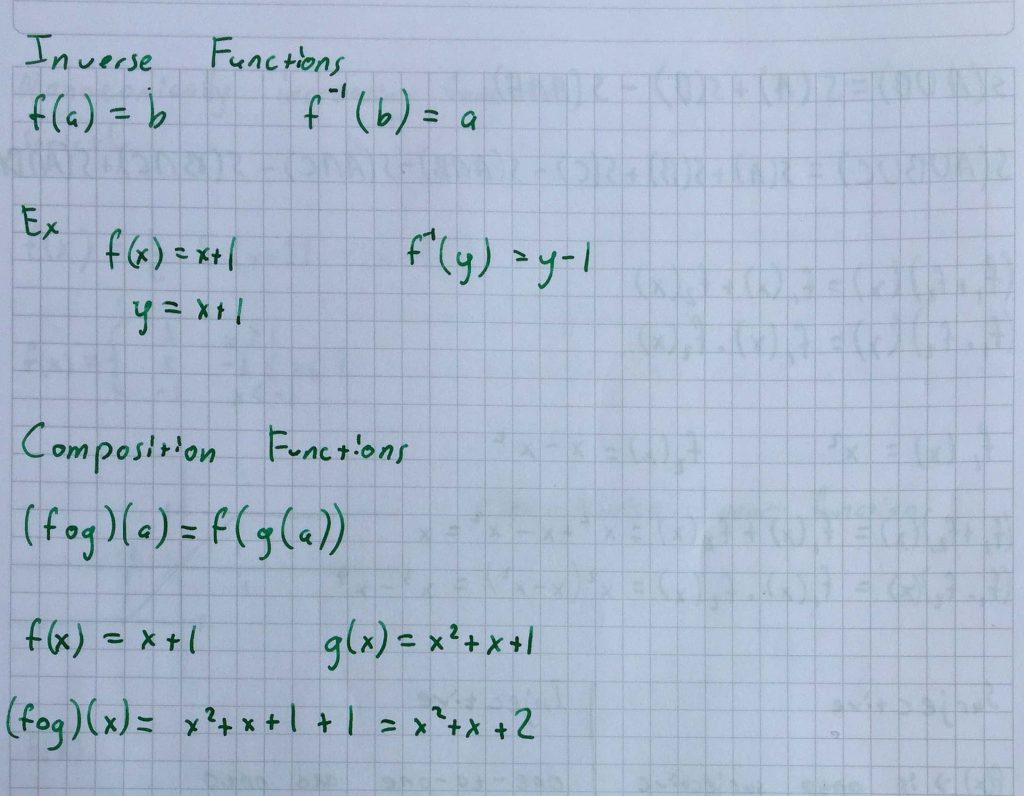 Inverse Functions
f(a) = b f⁻¹(b) = a
Ex
f(x) = x+1 f⁻¹(y) = y-1
y = x+1
Composition Functions
(fog)(a) = f(g(a))
f(x) = x+1 g(x) = x²+x+1
(fog)(x) = x²+x+1+1 = x²+x+2